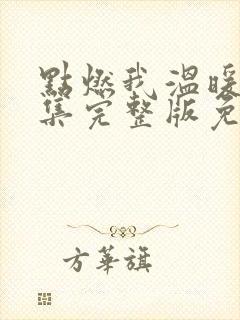 點燃我 溫暖
集完整版免
方華旗